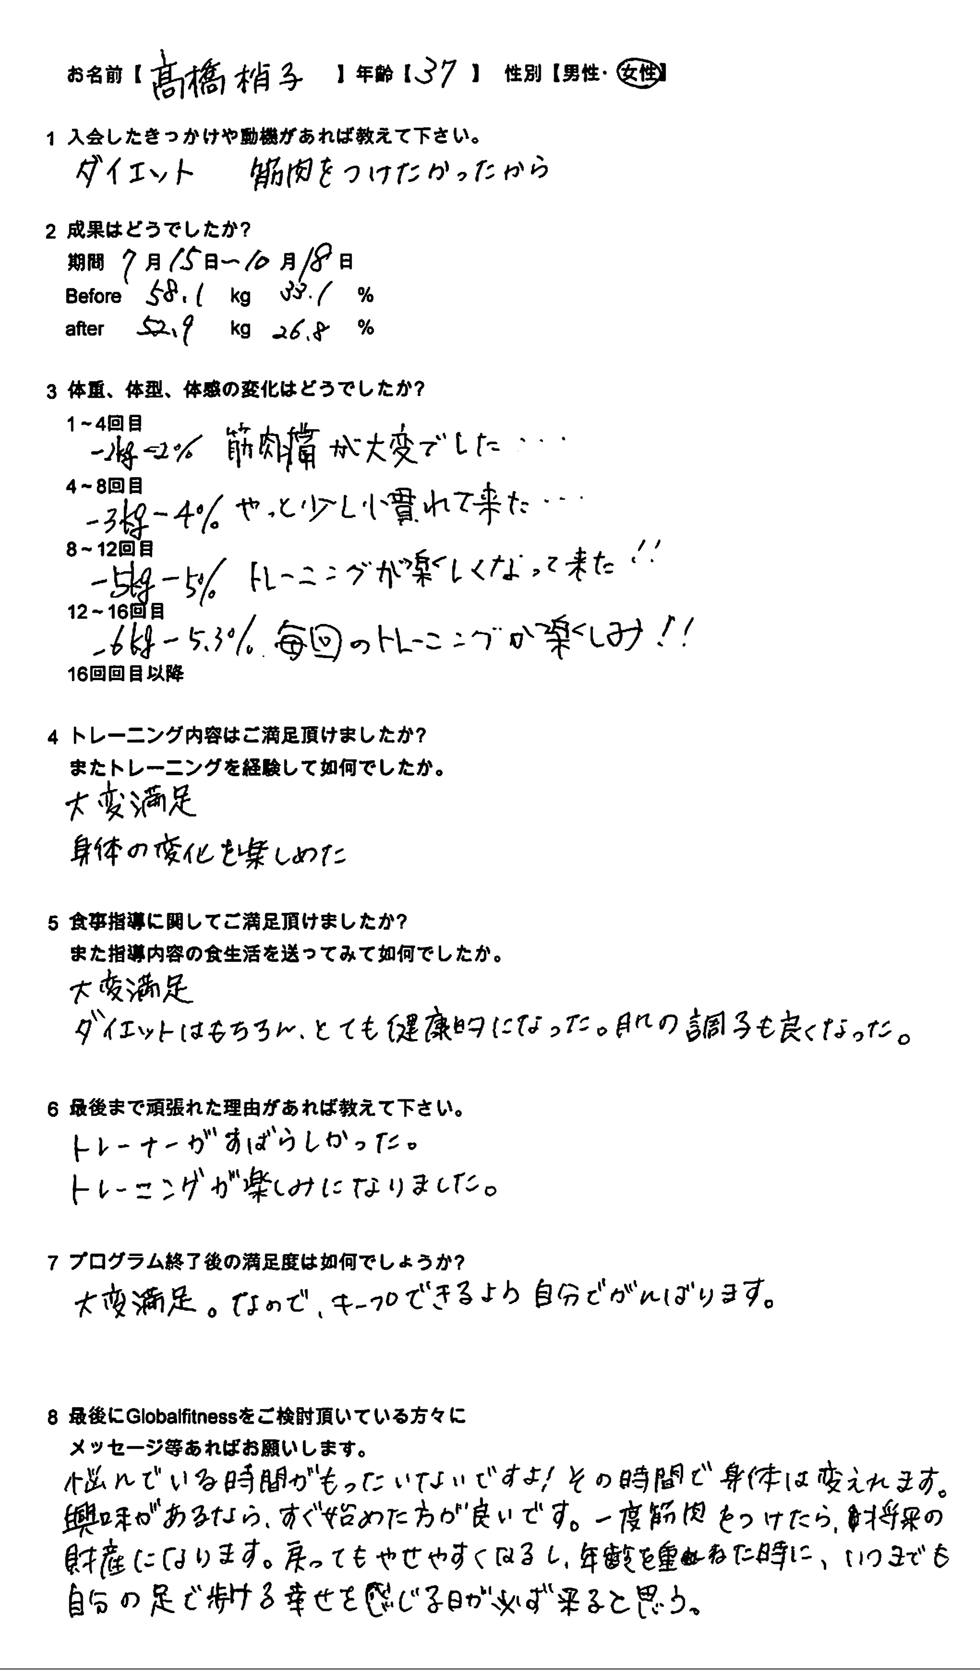 お名前【 高橋梢子 】年齢【 37 】 性別【男性・女性】
1 入会したきっかけや動機があれば教えて下さい。
ダイエット 筋肉をつけたかったから
2 成果はどうでしたか?
期間 7月15日～10月18日
Before 58.1 kg 33.1 %
after 52.9 kg 26.8 %
3 体重、体型、体感の変化はどうでしたか?
1～4回目
-2kg -2% 筋肉痛が大変でした・・・
4～8回目
-3kg -4% やっと少し慣れて来た・・・
8～12回目
-5kg -5% トレーニングが楽しくなって来た!!
12～16回目
-6kg -5.3% 毎回のトレーニングが楽しみ!!
16回回目以降
4 トレーニング内容はご満足頂けましたか?
またトレーニングを経験して如何でしたか。
大変満足
身体の変化を楽しめた
5 食事指導に関してご満足頂けましたか?
また指導内容の食生活を送ってみて如何でしたか。
大変満足
ダイエットはもちろん、とても健康的になった。肌の調子も良くなった。
6 最後まで頑張れた理由があれば教えて下さい。
トレーナーがすばらしかった。
トレーニングが楽しみになりました。
7 プログラム終了後の満足度は如何でしょうか?
大変満足。なので、キープできるよう自分でがんばります。
8 最後にGlobalfitnessをご検討頂いている方々に
メッセージ等あればお願いします。
悩んでいる時間がもったいないですよ!その時間で身体は変えれます。
興味があるなら、すぐ始めた方が良いです。一度筋肉をつけたら、将来の
財産になります。戻ってもやせやすくなるし、年齢を重ねた時に、いつまでも
自分の足で歩ける幸せを感じる日が必ず来ると思う。